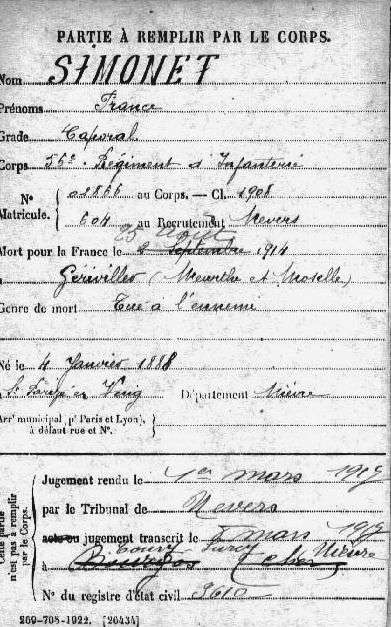 PARTIE À REMPLIR PAR LE CORPS.
Nom SIMONET
Prénoms France
Grade Caporal
Corps 56e Régiment d'Infanterie
N° Matricule. { 01866 au Corps. — Cl. 1908
604 au Recrutement Nevers
25 Août
Mort pour la France le 2 Septembre 1914
à Gerbéviller (Meurthe et Moselle)
Genre de mort Tué à l'ennemi
Né le 4 Janvier 1888
à St Département Nièvre
Arrt municipal (pr Paris et Lyon), à défaut rue et N°.
Cette partie n'est pas à remplir par le Corps.
Jugement rendu le 1er mars 1917
par le Tribunal de Nevers
acte ou jugement transcrit le mars 1917
à Nièvre
N° du registre d'état civil
269-708-1922. [26434]